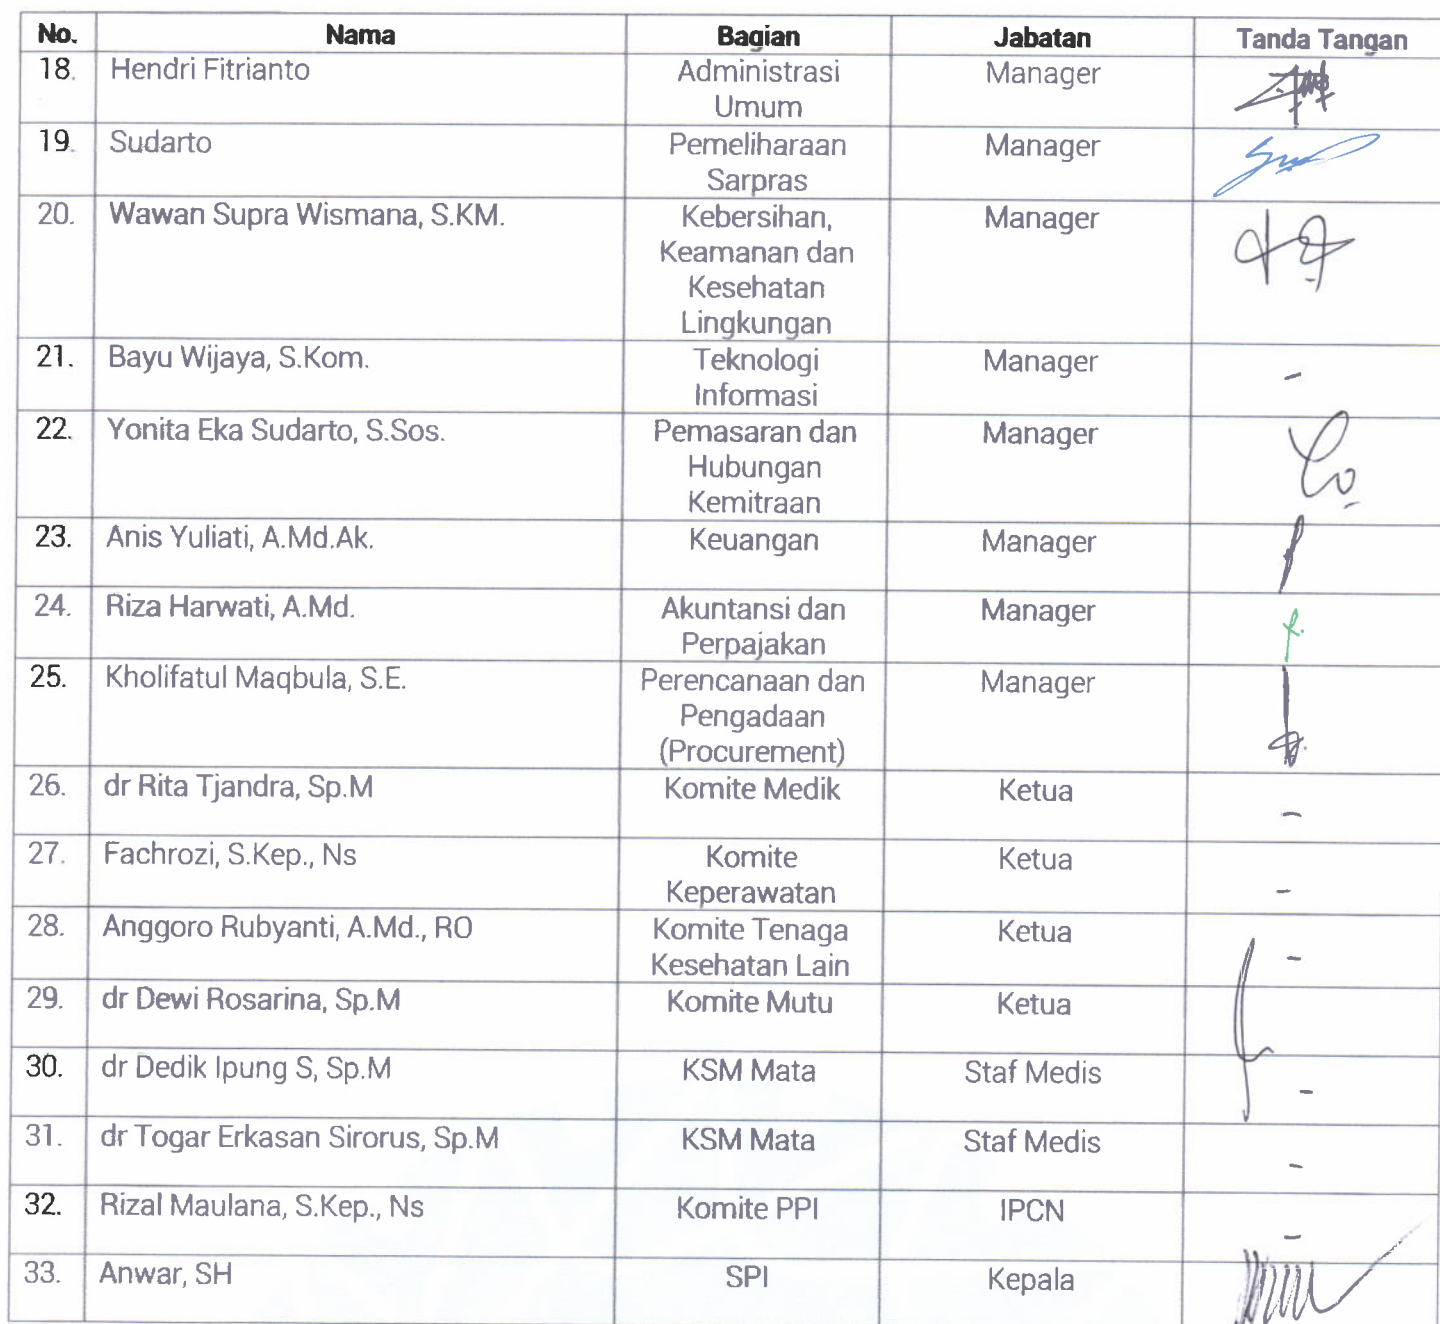 No. Nama Bagian Jabatan Tanda Tangan
18. Hendri Fitrianto Administrasi Manager
Umum
19. Sudarto Pemeliharaan Manager
Sarpras
20. Wawan Supra Wismana, S.KM. Kebersihan, Manager
Keamanan dan
Kesehatan
Lingkungan
21. Bayu Wijaya, S.Kom. Teknologi Manager -
Informasi
22. Yonita Eka Sudarto, S.Sos. Pemasaran dan Manager
Hubungan
Kemitraan
23. Anis Yuliati, A.Md.Ak. Keuangan Manager
24. Riza Harwati, A.Md. Akuntansi dan Manager
Perpajakan
25. Kholifatul Maqbula, S.E. Perencanaan dan Manager
Pengadaan
(Procurement)
26. dr Rita Tjandra, Sp.M Komite Medik Ketua -
27. Fachrozi, S.Kep., Ns Komite Ketua -
Keperawatan
28. Anggoro Rubyanti, A.Md., RO Komite Tenaga Ketua -
Kesehatan Lain
29. dr Dewi Rosarina, Sp.M Komite Mutu Ketua
30. dr Dedik Ipung S, Sp.M KSM Mata Staf Medis -
31. dr Togar Erkasan Sirorus, Sp.M KSM Mata Staf Medis -
32. Rizal Maulana, S.Kep., Ns Komite PPI IPCN -
33. Anwar, SH SPI Kepala